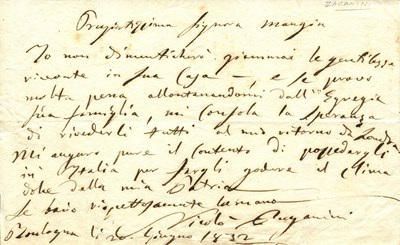 PAGANINI
Pregiatissima Signora Mangin
Io non dimenticherò giammai le gentilezze
ricevute in Sua Casa —, e se provo
molta pena allontanandomi dall' Egregia
Sua famiglia, mi consola la speranza
di rivederli tutti al mio ritorno da Londra
Mi auguro pure il contento di possedergli
in Italia per fargli godere il clima
dolce della mia Patria
Le bacio rispettosamente la mano
Nicolò Paganini
Boulogna li 20 Giugno 1832